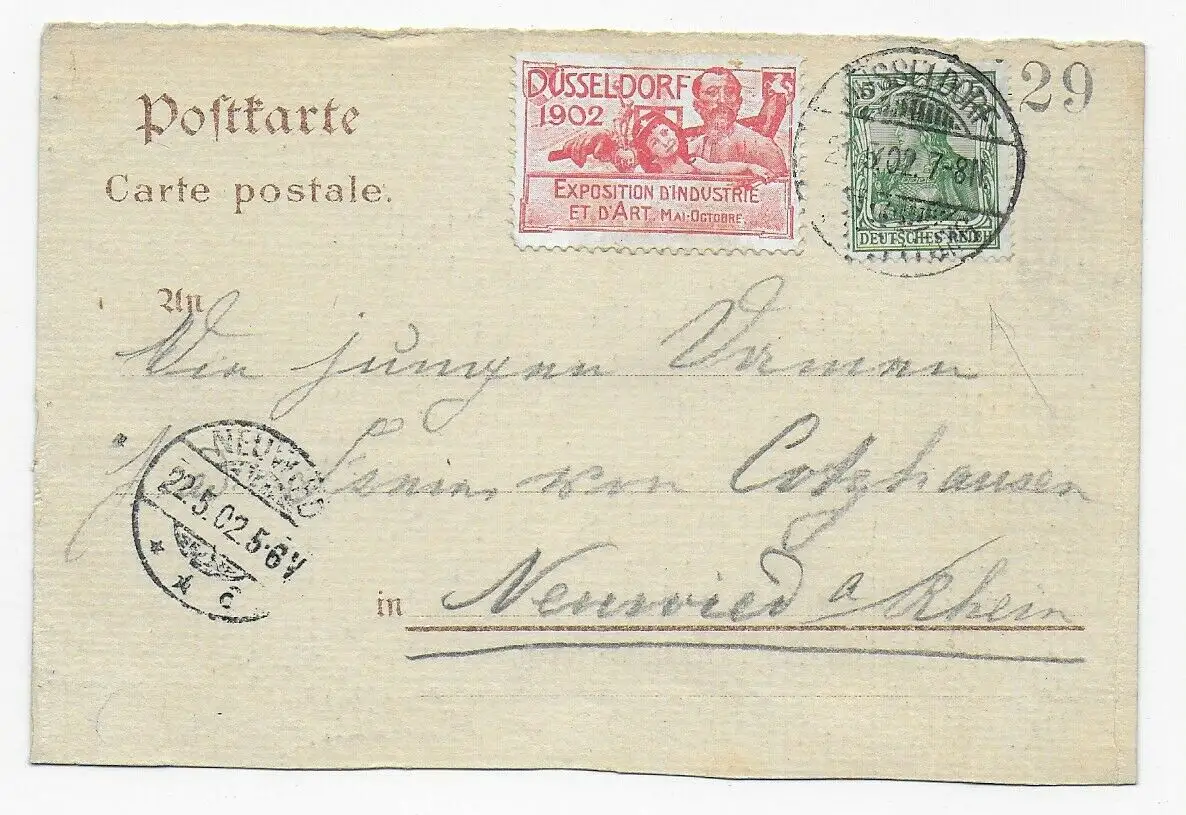 Postkarte
Carte postale.
DÜSSELDORF
1902
EXPOSITION D'INDUSTRIE
ET D'ART. MAI-OCTOBRE.
DÜSSELDORF
5.02. 7-8N
DEUTSCHES REICH
29
An
Die jungen Damen
von Cotzhausen
in Neuwied a Rhein
NEUWIED
22.5.02.5-6V
c